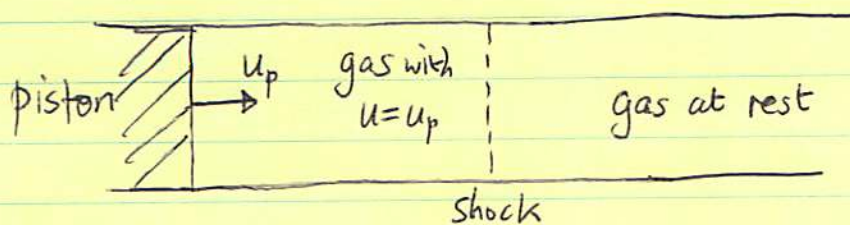 piston
u_p
gas with
u=u_p
gas at rest
shock